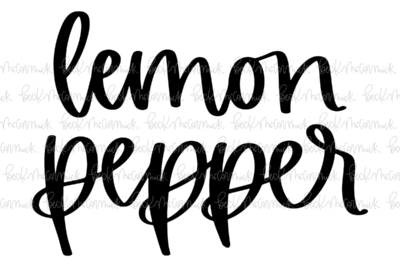 lemon
pepper